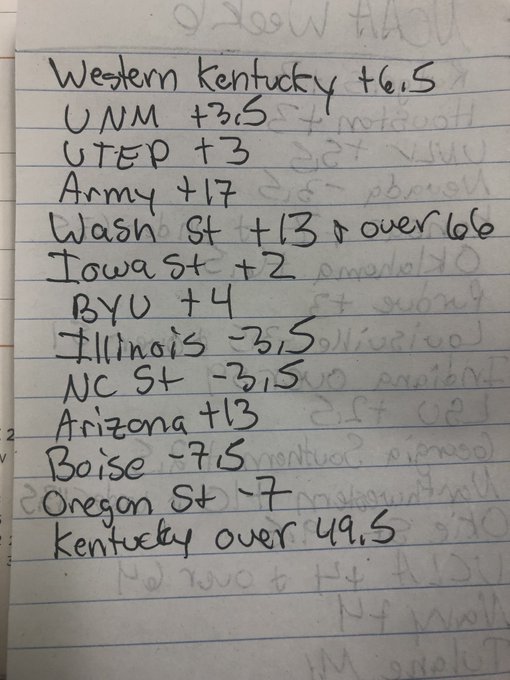 Western Kentucky +6.5
UNM +3.5
UTEP +3
Army +17
Wash St +13 & over 66
Iowa St +2
BYU +4
Illinois -3.5
NC St -3.5
Arizona +13
Boise -7.5
Oregon St -7
Kentucky over 49.5